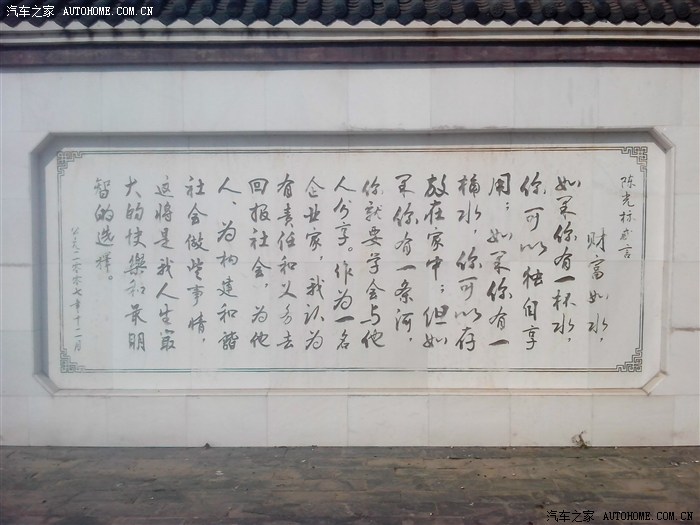 汽车之家 AUTOHOME.COM.CN
陈光标感言
财富如水，
如果你有一杯水，
你可以独自享
用；如果你有一
桶水，你可以存
放在家中；但如
果你有一条河，
你就要学会与他
人分享。作为一名
企业家，我认为
有责任和义务去
回报社会，为他
人、为构建和谐
社会做些事情，
这将是我人生最
大的快樂和最明
智的选择。
公元二〇〇七年十二月
汽车之家 AUTOHOME.COM.CN